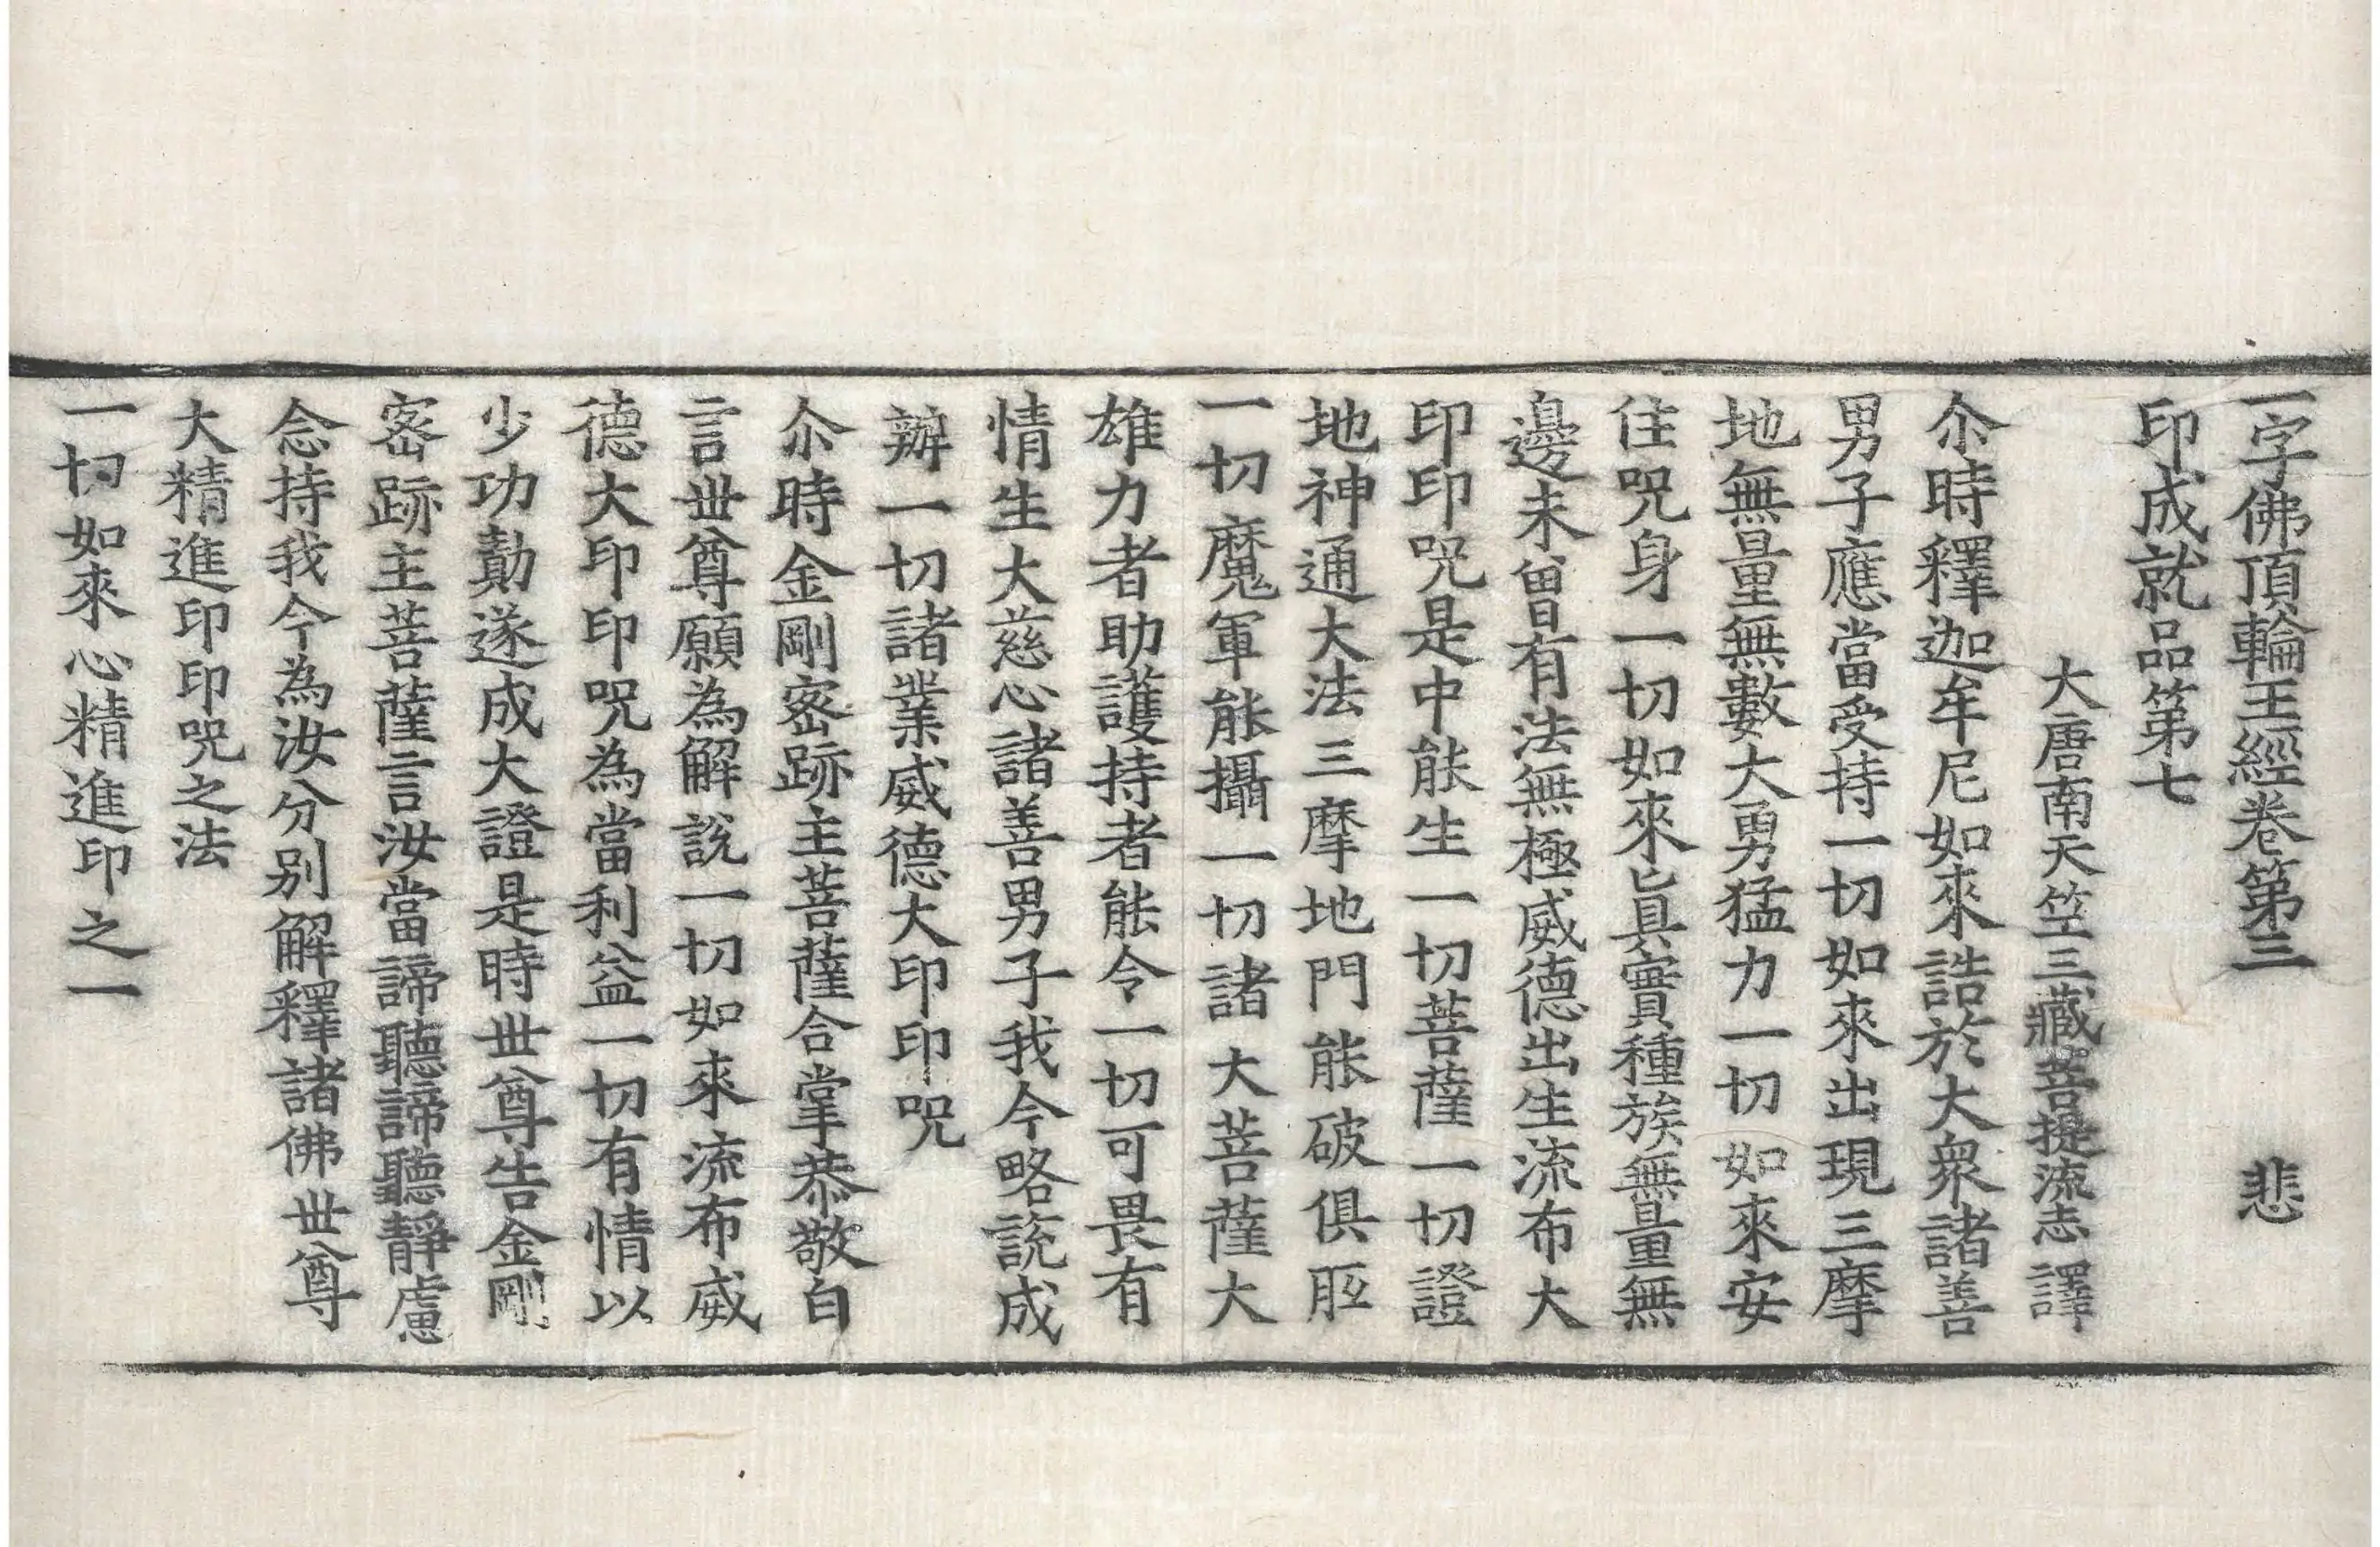 一字佛頂輪王經卷第三　悲
印成就品第七
大唐南天竺三藏菩提流志譯
尒時釋迦牟尼如來誥於大衆諸善
男子應當受持一切如來出現三摩
地無量無數大勇猛力一切如來安
住咒身一切如來眞實種族無量無
邊未曾有法無極威德出生流布大
印印咒是中能生一切菩薩一切證
地神通大法三摩地門能破俱胝
一切魔軍能攝一切諸大菩薩大
雄力者助護持者能令一切可畏有
情生大慈心諸善男子我今略說成
辦一切諸業威德大印印咒
尒時金剛密跡主菩薩合掌恭敬白
言世尊願為解說一切如來流布威
德大印印咒為當利益一切有情以
少功勣遂成大證是時世尊告金剛
密跡主菩薩言汝當諦聽諦聽靜慮
念持我今為汝分別解釋諸佛世尊
大精進印印咒之法
一切如來心精進印之一